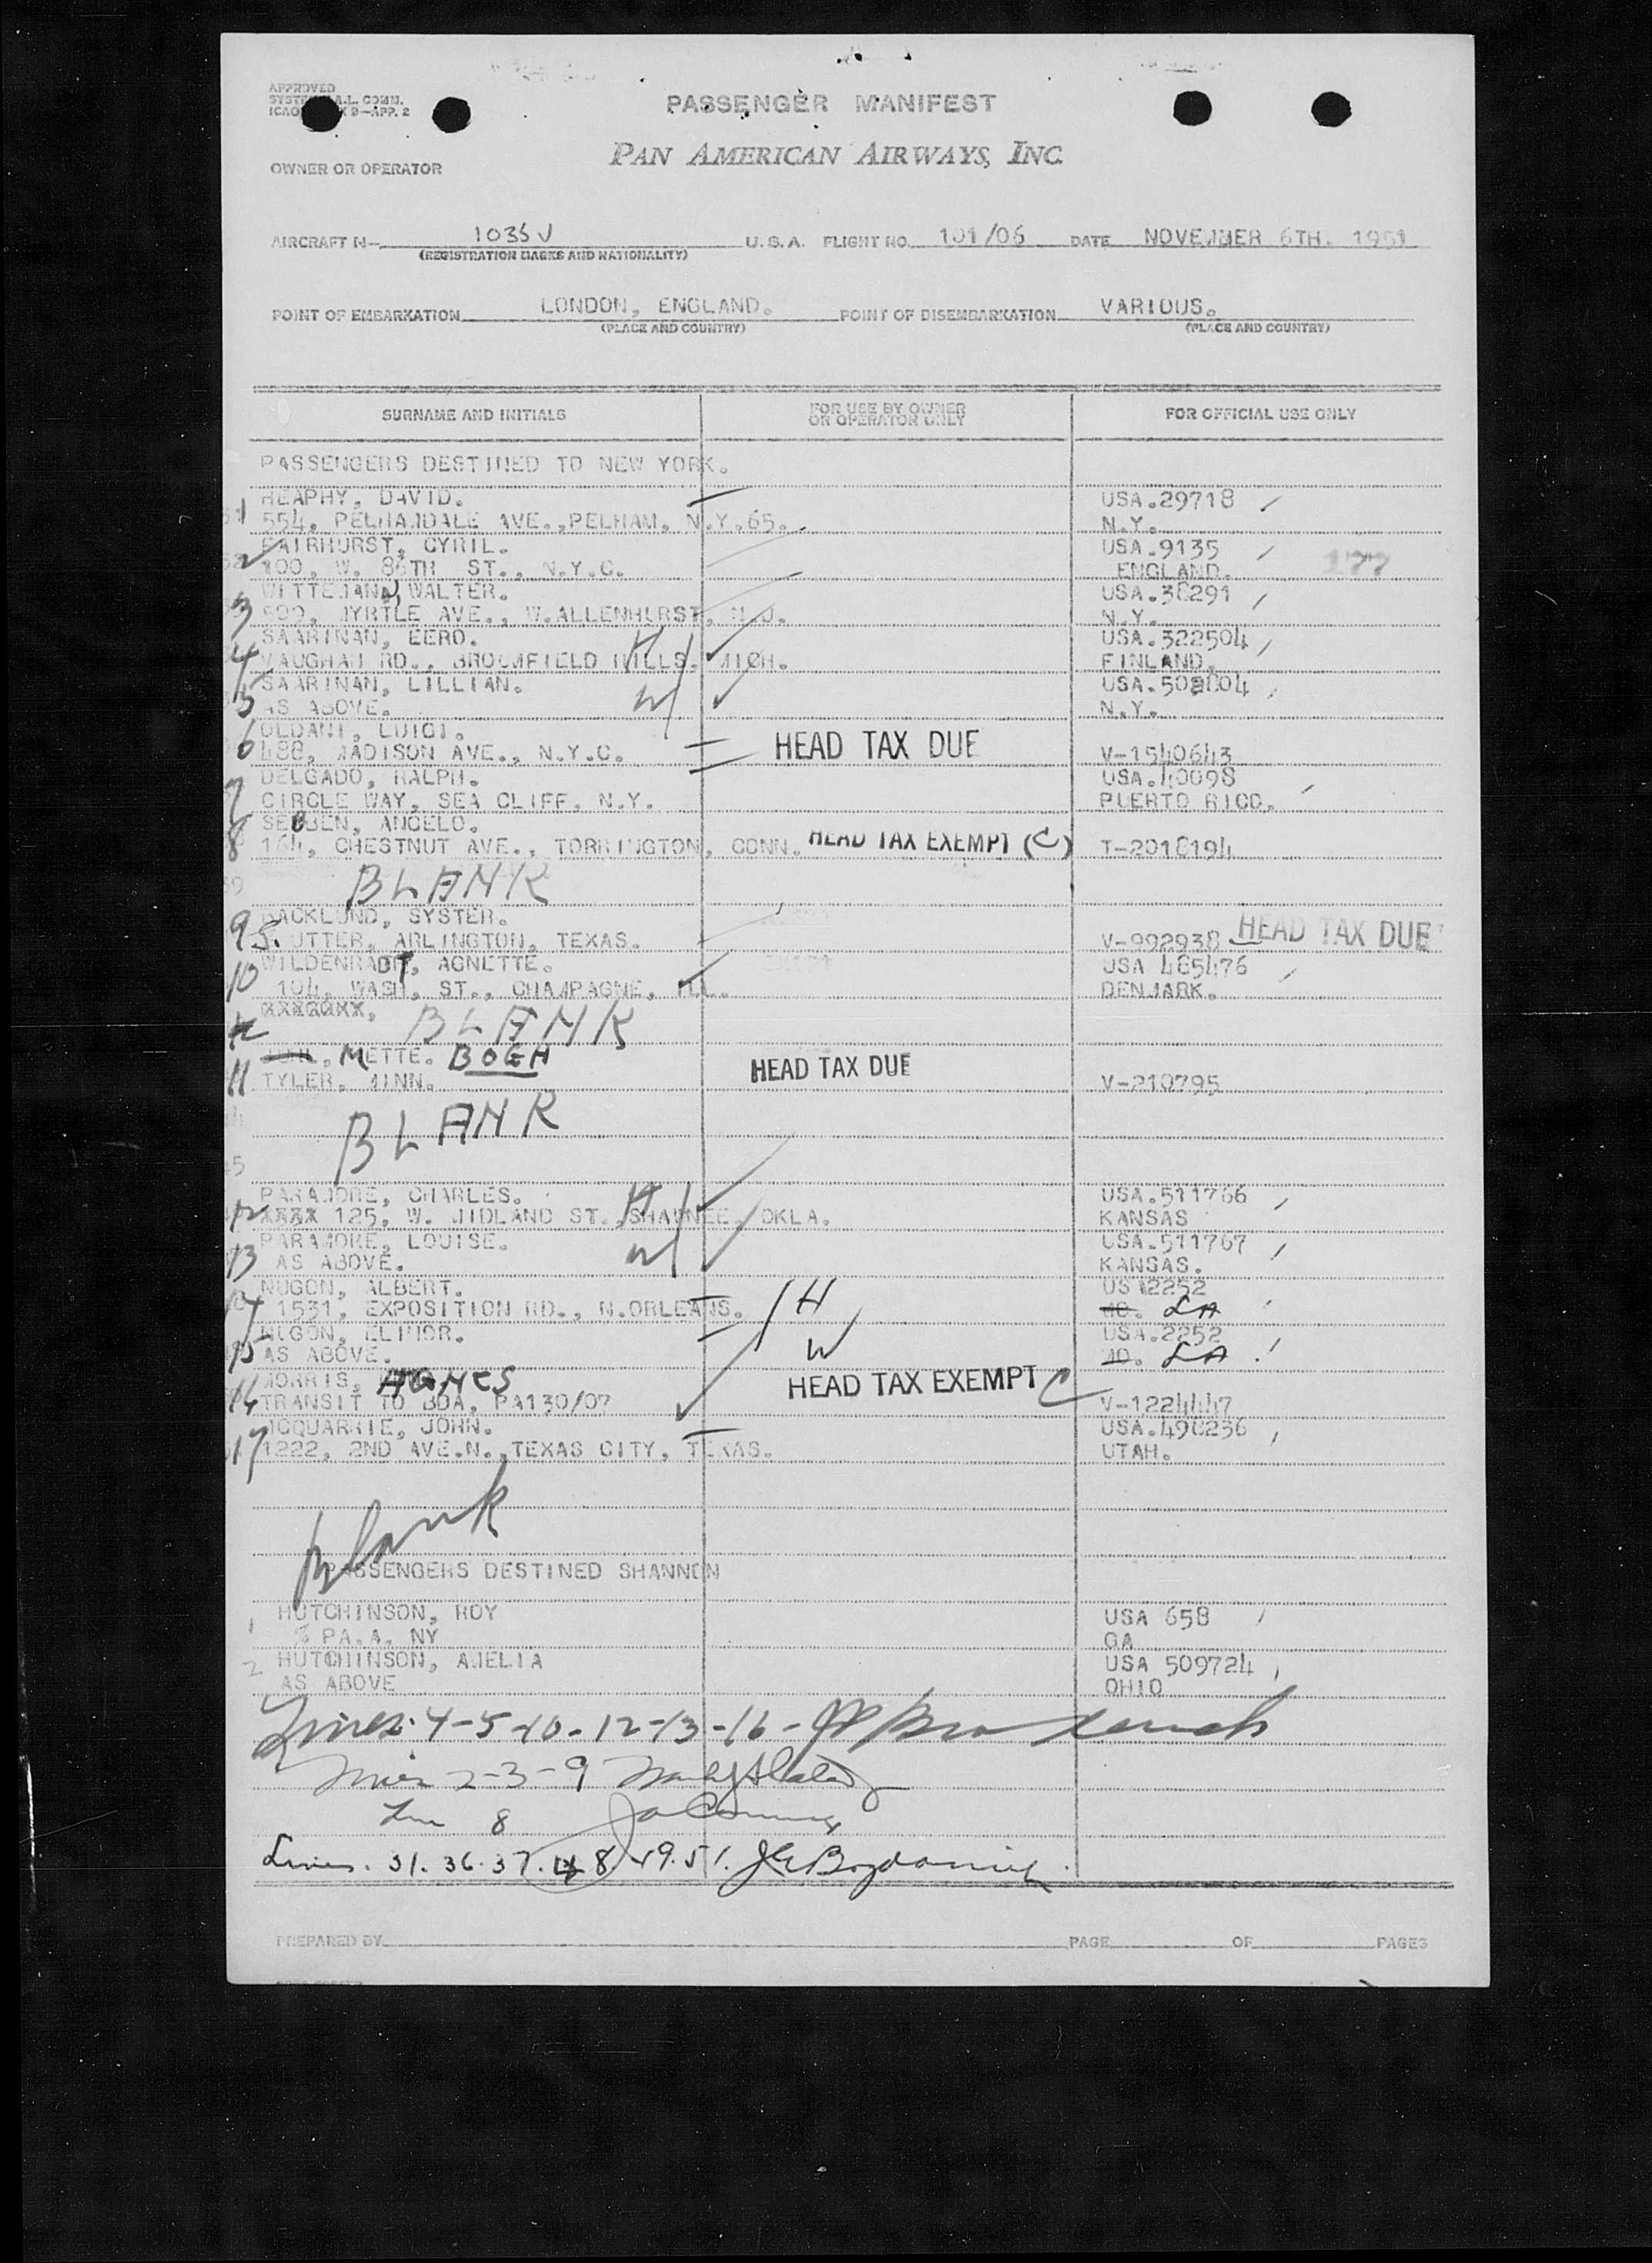 APPROVED
PASSENGER MANIFEST
PAN AMERICAN AIRWAYS, INC.
OWNER OR OPERATOR
AIRCRAFT N- 1036V U.S.A. FLIGHT NO. 101/06 DATE NOVEMBER 6TH. 1951
(REGISTRATION MARKS AND NATIONALITY)
POINT OF EMBARKATION LONDON, ENGLAND. POINT OF DISEMBARKATION VARIOUS.
(PLACE AND COUNTRY) (PLACE AND COUNTRY)
SURNAME AND INITIALS FOR USE BY OWNER OR OPERATOR ONLY FOR OFFICIAL USE ONLY
PASSENGERS DESTINED TO NEW YORK.
HEAPHY, DAVID. USA.29718
1 554, PELHAMDALE AVE.,PELHAM, N.Y.65. N.Y.
FAIRHURST, CYRIL. USA.9135
100, W. 86TH ST., N.Y.C. ENGLAND. 177
WITTEMANN, WALTER. USA.38291
3 500, MYRTLE AVE., W.ALLENHURST, N.J. N.Y.
SAARINAN, EERO. H USA.322504
4 VAUGHAN RD., BROOMFIELD HILLS. MICH. FINLAND.
SAARINAN, LILLIAN. W
5 AS ABOVE. N.Y.
OLDANI, LUIGI.
6 488, MADISON AVE., N.Y.C. HEAD TAX DUE V-1540643
DELGADO, RALPH. USA.40098
7 CIRCLE WAY, SEA CLIFF. N.Y. PUERTO RICO.
SEBBEN, ANGELO.
8 164, CHESTNUT AVE., TORRINGTON, CONN. HEAD TAX EXEMPT (C) T-2018194
BLANK
BACKLUND, SYSTER.
9 S. UTTER, ARLINGTON, TEXAS. V-992938 HEAD TAX DUE
WILDENRADT, AGNETTE. USA 485476
10 104, WASH, ST., CHAMPAGNE, ILL. DENMARK.
BLANK
METTE. BOGH HEAD TAX DUE
11 TYLER, MINN. V-210795
BLANK
PARAMORE, CHARLES. H USA.511766
12 XXXX 125, W. MIDLAND ST.,SHAWNEE, OKLA. KANSAS
PARAMORE, LOUISE. W USA.511767
13 AS ABOVE. KANSAS.
NUGON, ALBERT. H US 12252
14 1531, EXPOSITION RD., N.ORLEANS. MO. LA
NUGON, ELINOR. W USA.2252
15 AS ABOVE. MO. LA
MORRIS, AGNES HEAD TAX EXEMPT C
16 TRANSIT TO BDA, PA130/07 V-1224447
MCQUARRIE, JOHN. USA.498236
17 1222, 2ND AVE.N.,TEXAS CITY, TEXAS. UTAH.
blank
PASSENGERS DESTINED SHANNON
1 HUTCHINSON, ROY USA 658
% PA.A. NY GA
2 HUTCHINSON, AMELIA USA 509724
AS ABOVE OHIO
Lines 4-5-10-12-13-16-
Lines 2-3-9
Line 8
Lines. 31. 36. 37. 48. 49. 51.
PREPARED BY PAGE OF PAGES